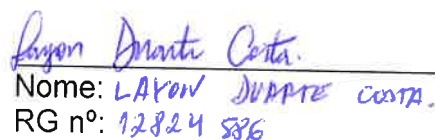 Layon Duarte Costa.
Nome: LAYON DUARTE COSTA.
RG nº: 12824 586